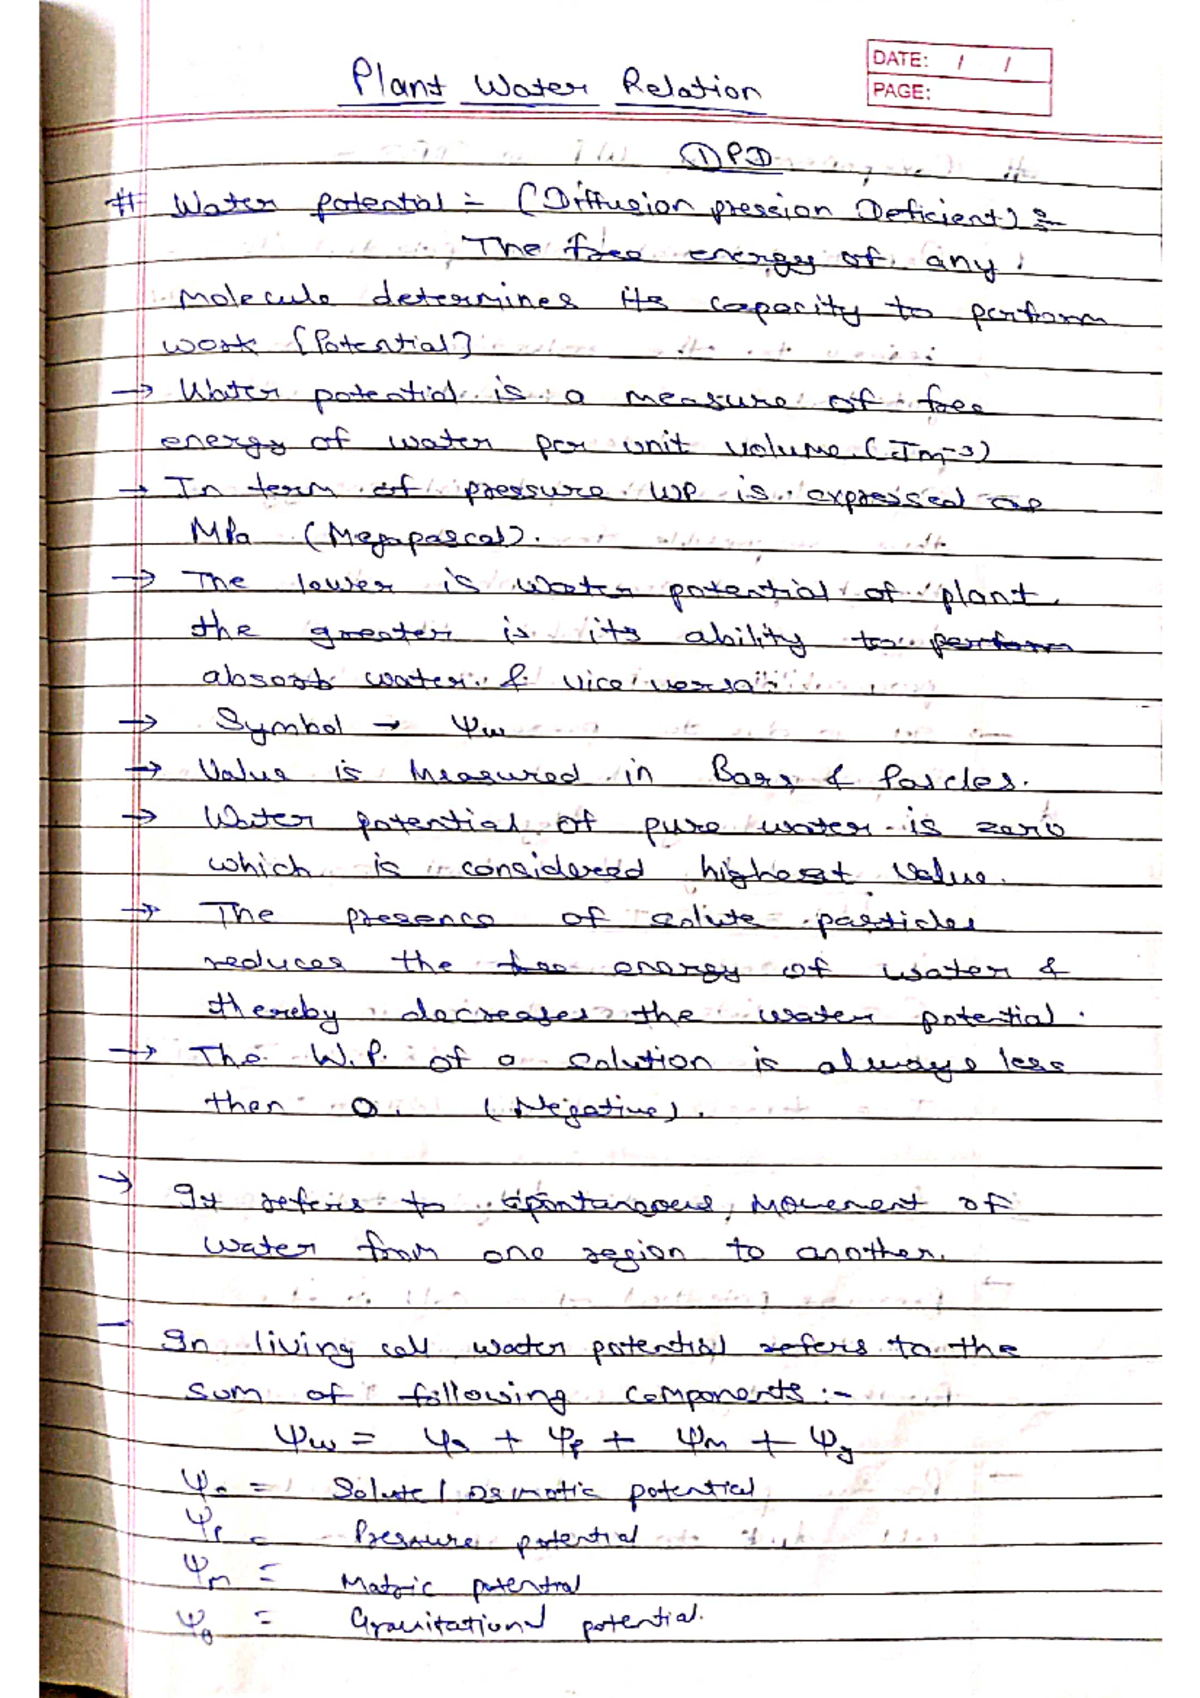 Plant Water Relation
DATE: / /
PAGE:
DPD
# Water potential :- (Diffusion pression Deficient) :-
The free energy of any
molecule determines its capacity to perform
work [Potential]
→ Water potential is a measure of free
energy of water per unit volume (Jm-3)
→ In term of pressure WP is expressed as
MPa (Megapascal).
→ The lower is water potential of plant
the greater is its ability to perform
absorb water & vice versa
→ Symbol → Ψw
→ Value is measured in Bars & Pascles.
→ Water potential of pure water is zero
which is considered highest value.
→ The presence of solute particles
reduces the free energy of water &
thereby decreases the water potential.
→ The W.P. of a solution is always less
then 0. (Negative).
→ It refers to spontaneous movement of
water from one region to another.
– In living cell water potential refers to the
sum of following components :-
Ψw = Ψs + Ψp + Ψm + Ψg
Ψs = Solute / Osmotic potential
Ψp = Pressure potential
Ψm = Matric potential
Ψg = Gravitational potential.